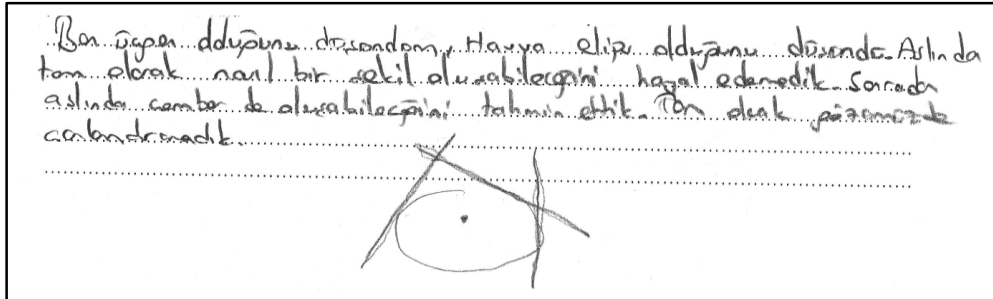 Ben üçgen olduğunu düşündüm, Havva elips olduğunu düşündü. Aslında
tam olarak nasıl bir şekil oluşabileceğini hayal edemedik. Sonrada
aslında çember de oluşabileceğini tahmin ettik. Tam olarak gözümüzde
canlandıramadık.